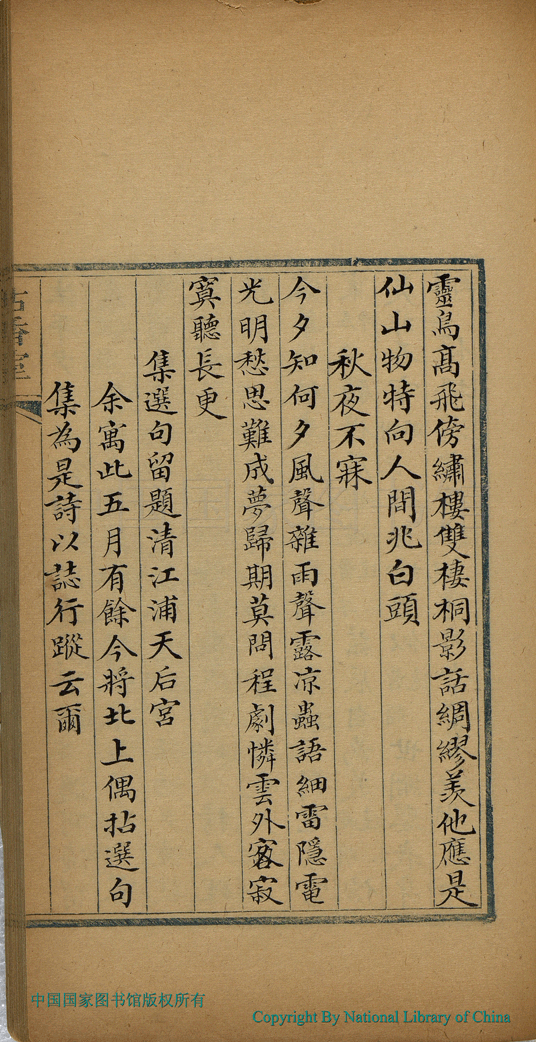 靈鳥高飛傍繡樓雙棲桐影話綢繆羨他應是
仙山物特向人間兆白頭
秋夜不寐
今夕知何夕風聲雜雨聲露凉蟲語細雷隱電
光明愁思難成夢歸期莫問程劇憐雲外客寂
寞聽長更
集選句留題清江浦天后宮
余寓此五月有餘今將北上偶拈選句
集為是詩以誌行蹤云爾
中国国家图书馆版权所有
Copyright By National Library of China